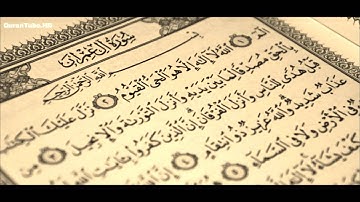 QuraniTube.HD
سُورَةُ آلِ عِمْرَانَ
بِسْمِ ٱللَّهِ ٱلرَّحْمَٰنِ ٱلرَّحِيمِ
الٓمٓ ١ ٱللَّهُ لَآ إِلَٰهَ إِلَّا هُوَ ٱلْحَىُّ ٱلْقَيُّومُ ٢ نَزَّلَ عَلَيْكَ ٱلْكِتَٰبَ
بِٱلْحَقِّ مُصَدِّقًا لِّمَا بَيْنَ يَدَيْهِ وَأَنزَلَ ٱلتَّوْرَىٰةَ وَٱلْإِنجِيلَ ٣ مِن
قَبْلُ هُدًى لِّلنَّاسِ وَأَنزَلَ ٱلْفُرْقَانَ إِنَّ ٱلَّذِينَ كَفَرُوا۟ بِـَٔايَٰتِ ٱللَّهِ
عَذَابٌ شَدِيدٌ وَٱللَّهُ عَزِيزٌ ذُو ٱنتِقَامٍ ٤ إِنَّ ٱللَّهَ
ٱلْأَرْضِ وَلَا فِى ٱلسَّمَآءِ ٥